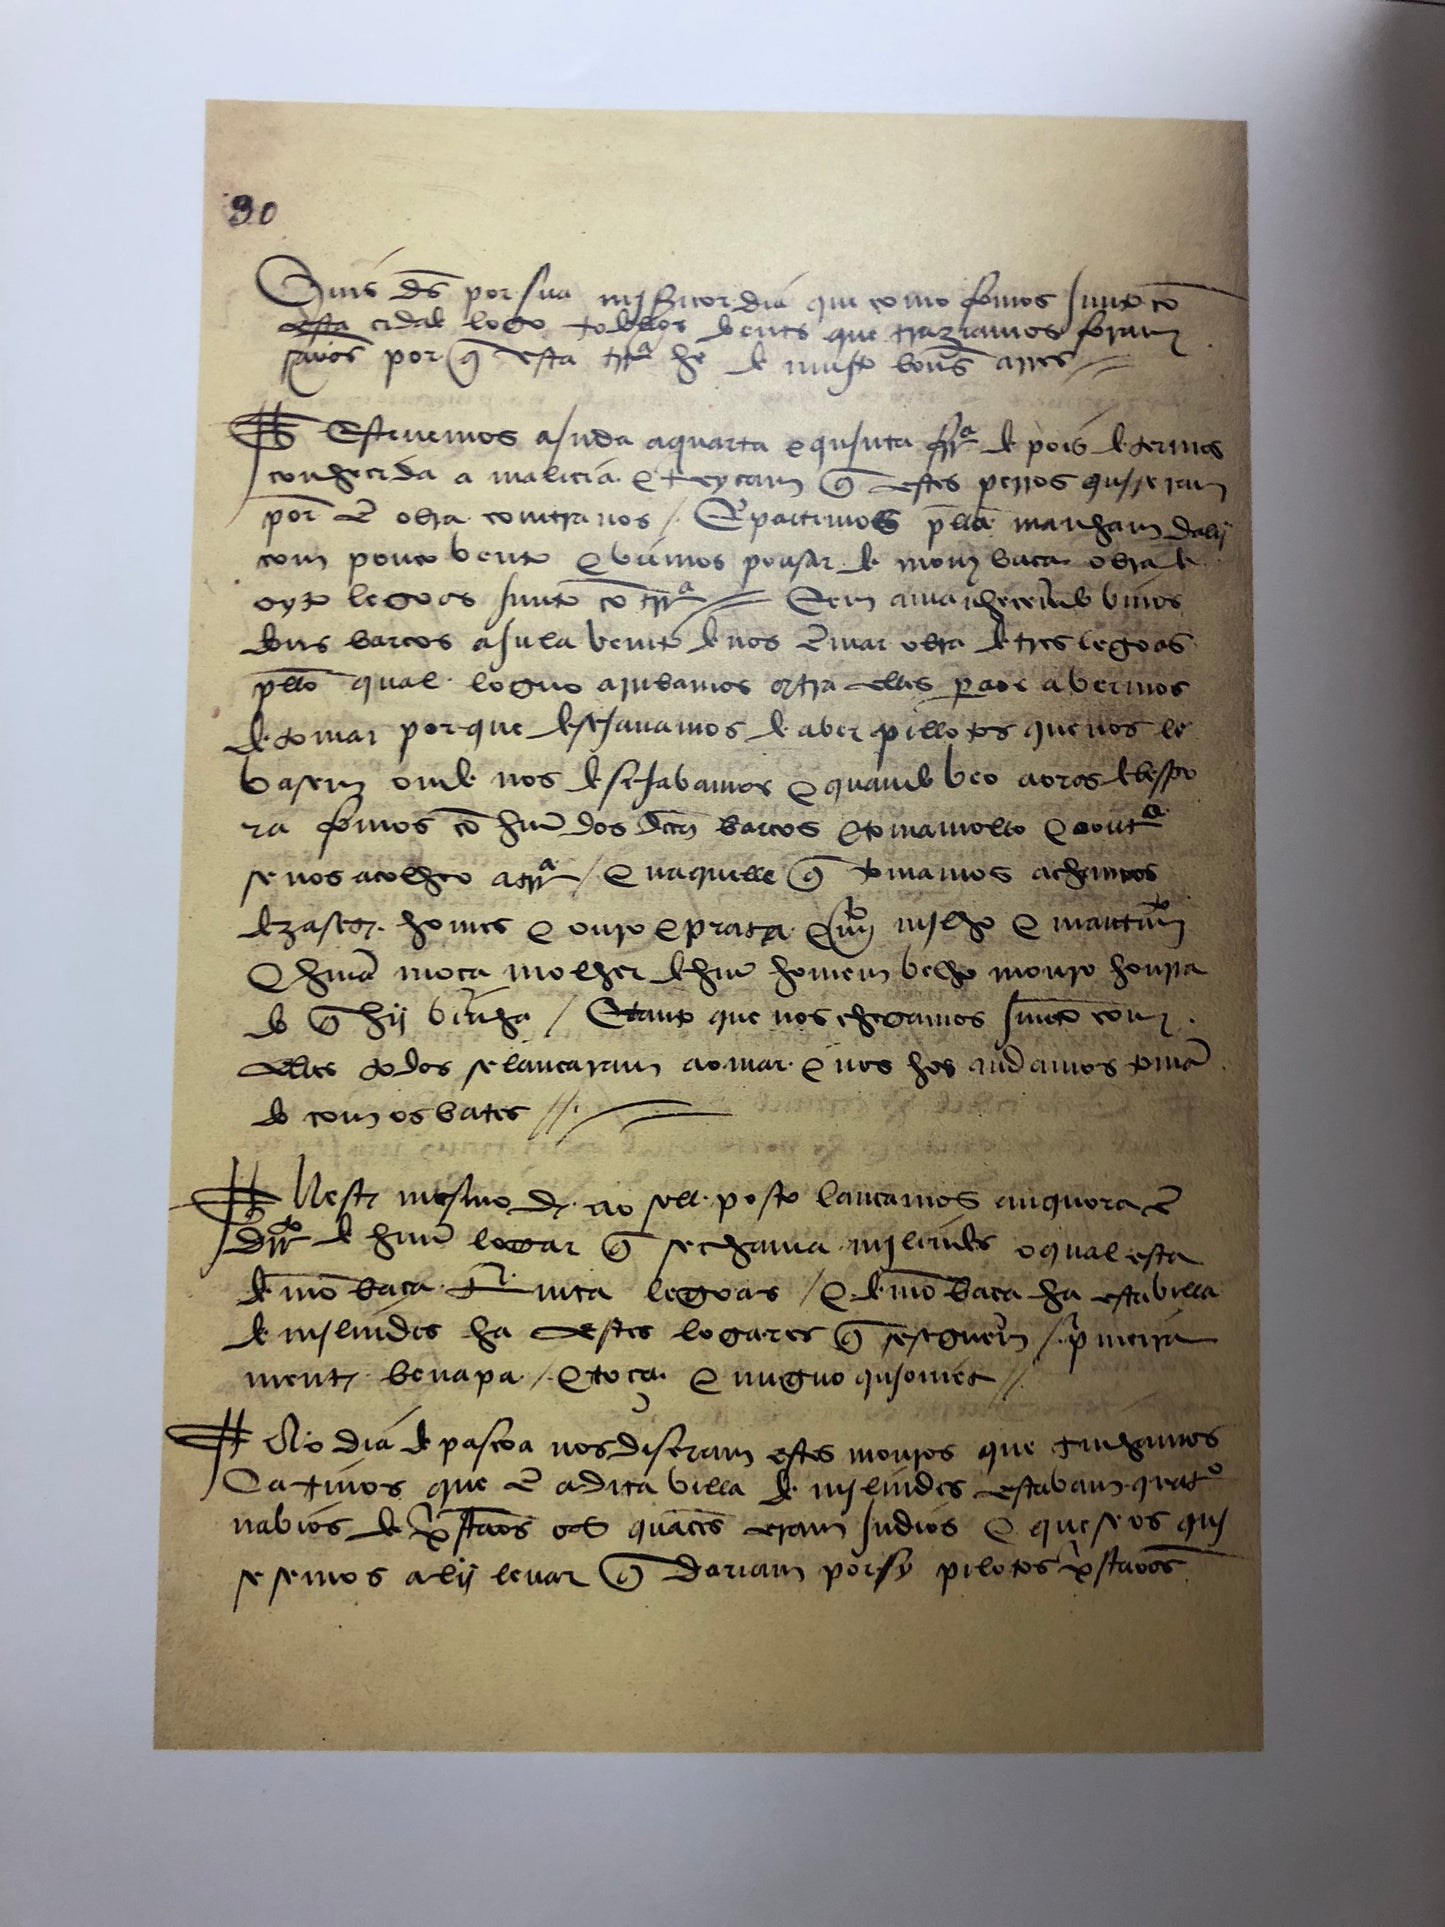 30
Quis ds por sua mjsericordia que como fomos junto cõ
esta cidade logo todollos doentes que traziamos foram
sãaos por q̃ esta trr.ª he de muito boũs arres
Estevemos ajnda a quarta e qujnta frr.ª depois de termos
conhecida a malicia e treycam q̃ estes perros qujseram
poer em obra comtra nos / E partimos p̃lla manham daly
com pouco bento e viemos pousar de mombaca obra de
oyto legoas junto cõ trr.ª E em amanhecendo vimos
dous barcos a jula vento de nos ẽ mar obra de tres legoas
pello qual loguo arribamos contra elles pera os avermos
de tomar porque desejavamos de aver pillotos que nos le
basem onde nos desejabamos e quando veo a oras de bespo
ra fomos cõ huũ dos ditos barcos e tomamollo e o out.º
se nos acolheo a trr.ª / e naquelle q̃ tomamos achamos
dezasete homes e ouro e prata e mto mjlho e mantim.to
e huã moca molher de huũ homem belho mouro honrra
do q̃ hij vinha / E tanto que nos chegamos junto com
elles todos se lancaram ao mar e nos hos andamos toman
do com os bates
Neste mesmo dia ao soll posto lancamos anquora ẽ
dirr.to de huũ logar q̃ se chama mjlimde o qual esta
de mõbaca trinta legoas / e de mõbaca ha esta villa
de mjlindes ha estes logares q̃ se seguem / primeira
mente benapa / e toça e nuguo qujoniete
No dia de pascoa nos diseram estes mouros que tinhamos
cativos que ẽ a dita villa de mjlindes estabam quatr.º
nabios de xp̃staos os quaees eram judios e que se os quj
sesemos alij levar q̃ dariam por sy pilotos xp̃staoos